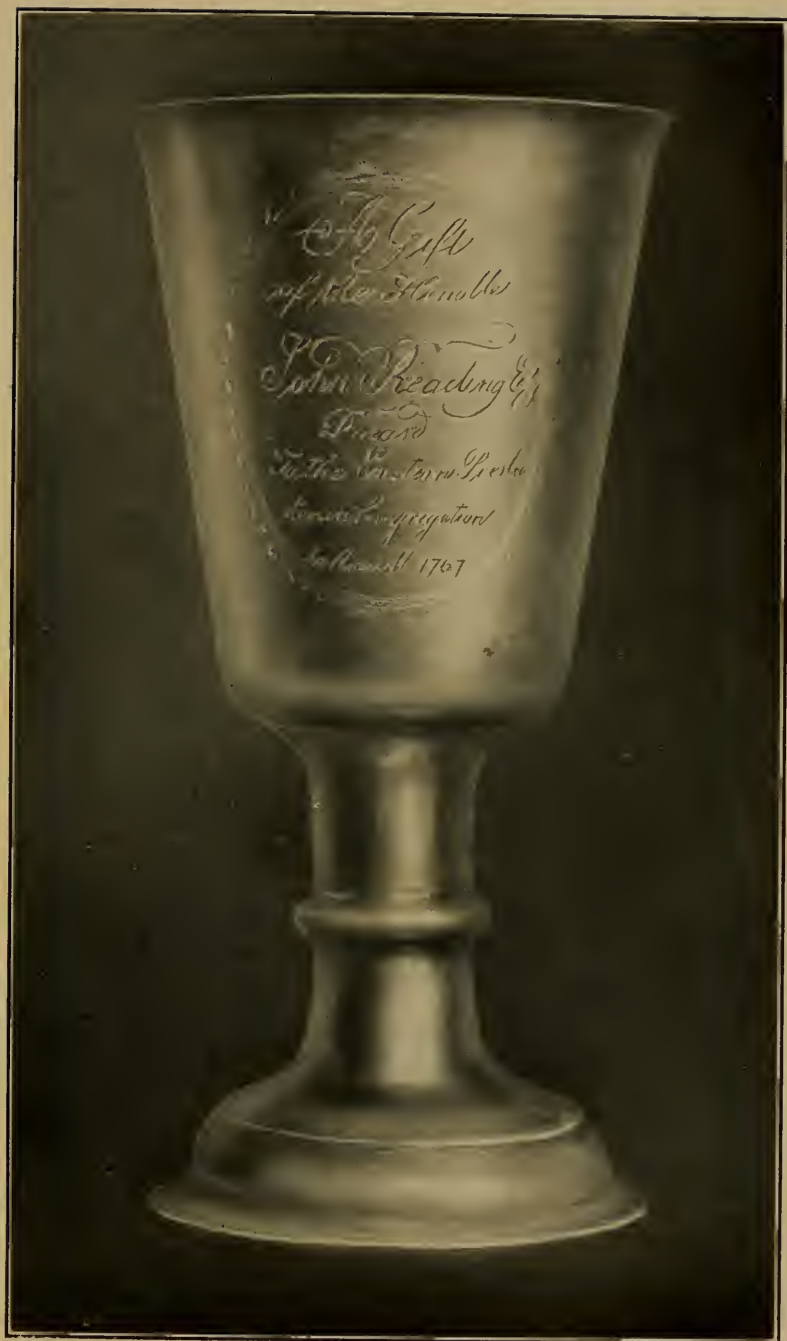 A Gift
of the Honble
John Reading Esq
To the Western Presby
terian Congregation
1767